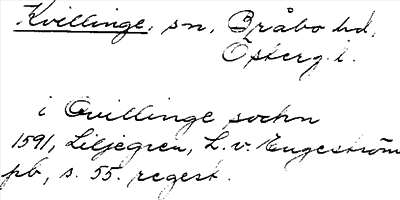 Kvillinge, sn, Bråbo hd,
Österg. l.
i Qvillinge sochn
1591, Liljegren, L. v. Engeström
pb, s. 55. regest.